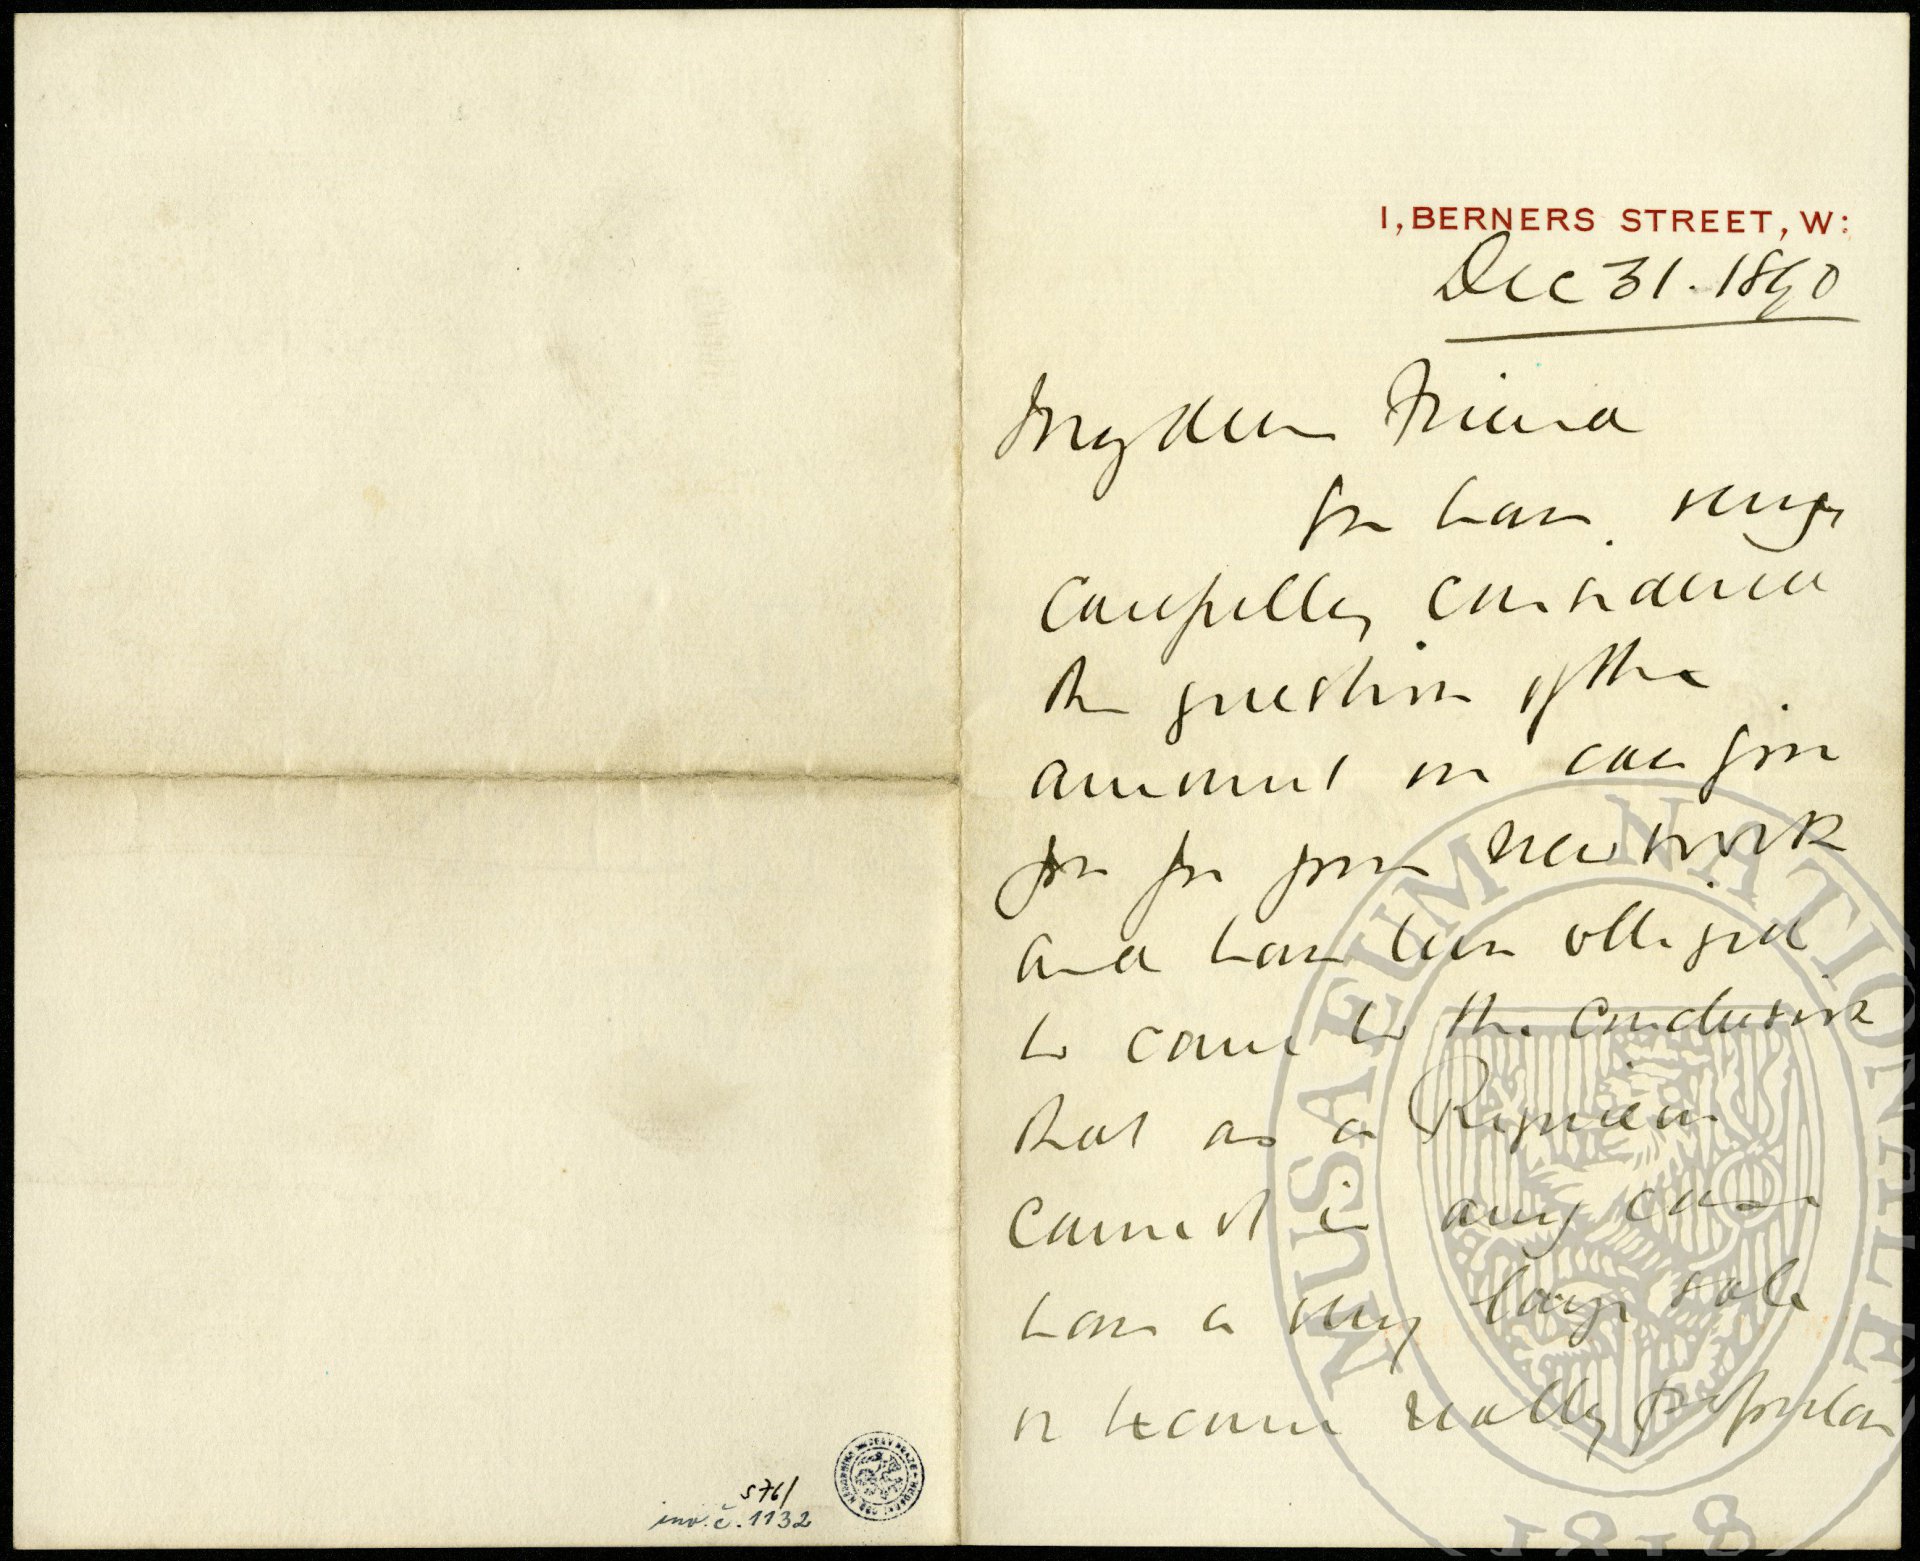 1, BERNERS STREET, W:
Dec 31. 1890
My dear Friend
We have very
carefully considered
the question of the
amount we can give
you for your new work
and have been obliged
to come to the conclusion
that as a Requiem
cannot in any case
have a very large sale
or become really popular
576/
inv. č. 1132
MUSAEUM NATIONALE
1818